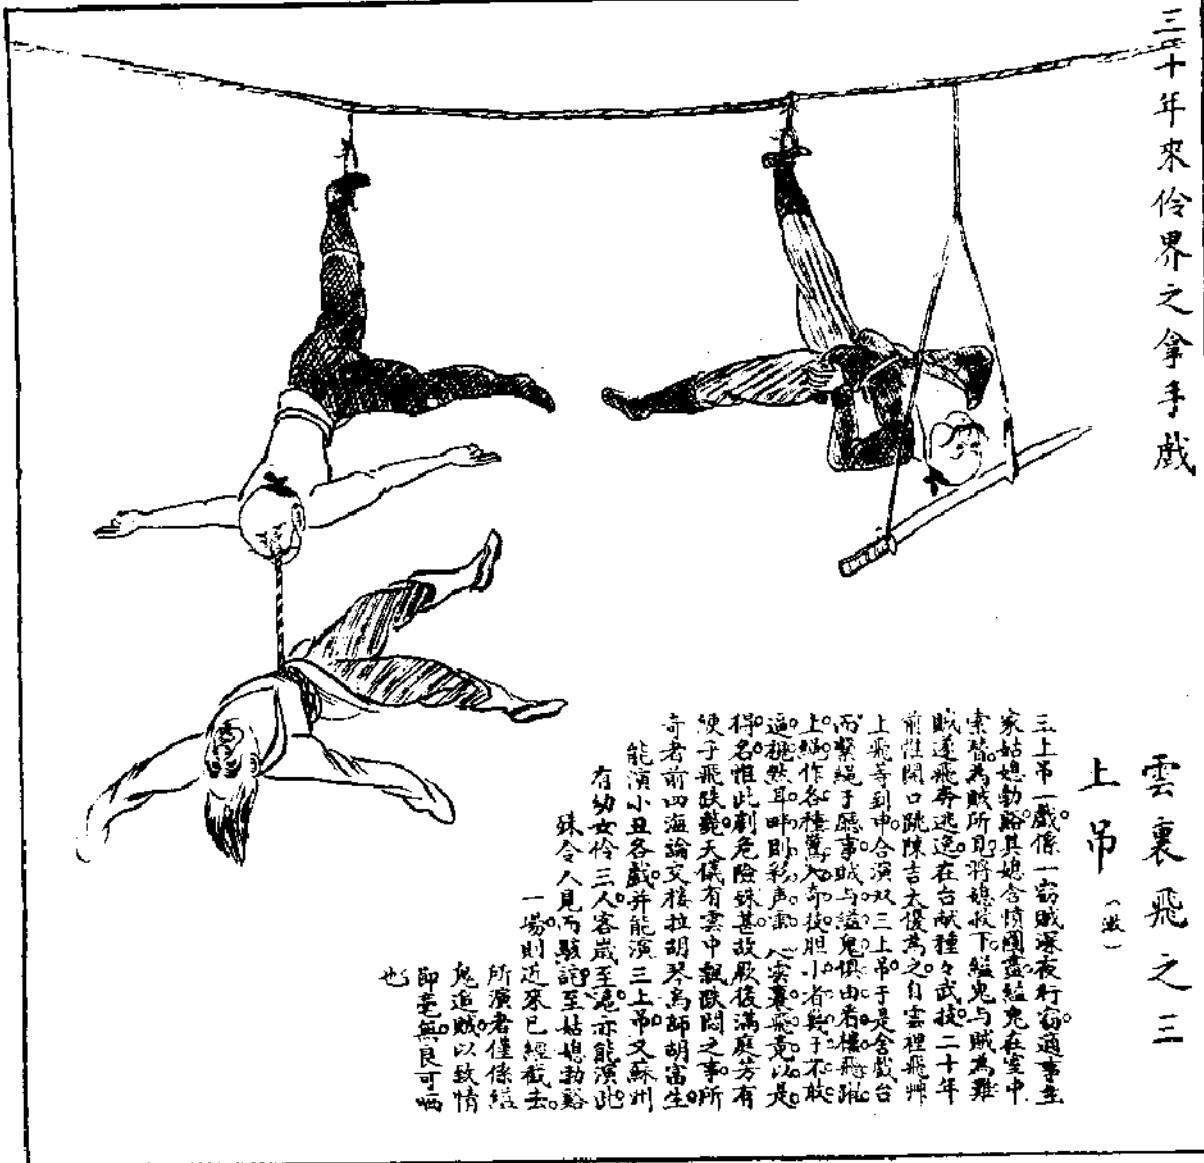 三四十年來伶界之拿手戲
雲裏飛之三
上吊
三上吊一戲。係一窃賊深夜行窃。適事主
家姑媳勃谿。其媳含憤圖盡。縊鬼在室中
索替。為賊所見。將媳救下。縊鬼与賊為難
賊遂飛奔逃逸。在台献種々武技。二十年
前性開口跳陳吉太優為之。自雲裡飛艸
上飛等到申。合演双三上吊。于是舍戲台
而繫繩于廳事。賊与縊鬼。俱由看樓飛躍
上繩。作各種驚人奇技。胆小者幾于不敢
逼視。然耳畔則彩声雷 雲裏飛竟以是
得名。惟此劇危險殊甚。故厥後滿庭芳有
綆子飛跌斃。天儀有雲中飄跌悶之事。所
奇者前四海論交樓拉胡琴烏師胡富生
能演小丑各戲。并能演三上吊。又蘇州
有幼女伶三人。客歲至滬。亦能演此。
殊令人見而駭詫。至姑媳勃谿
一場。則近來已經截去。
所演者僅係縊
鬼追賊。以致情
節毫無。良可哂
也